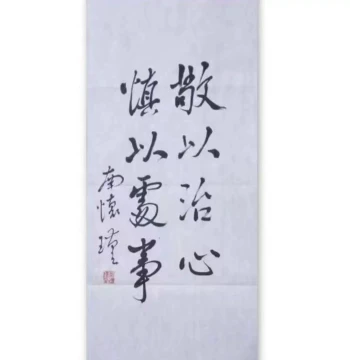 敬以治心
慎以處事
南懷瑾